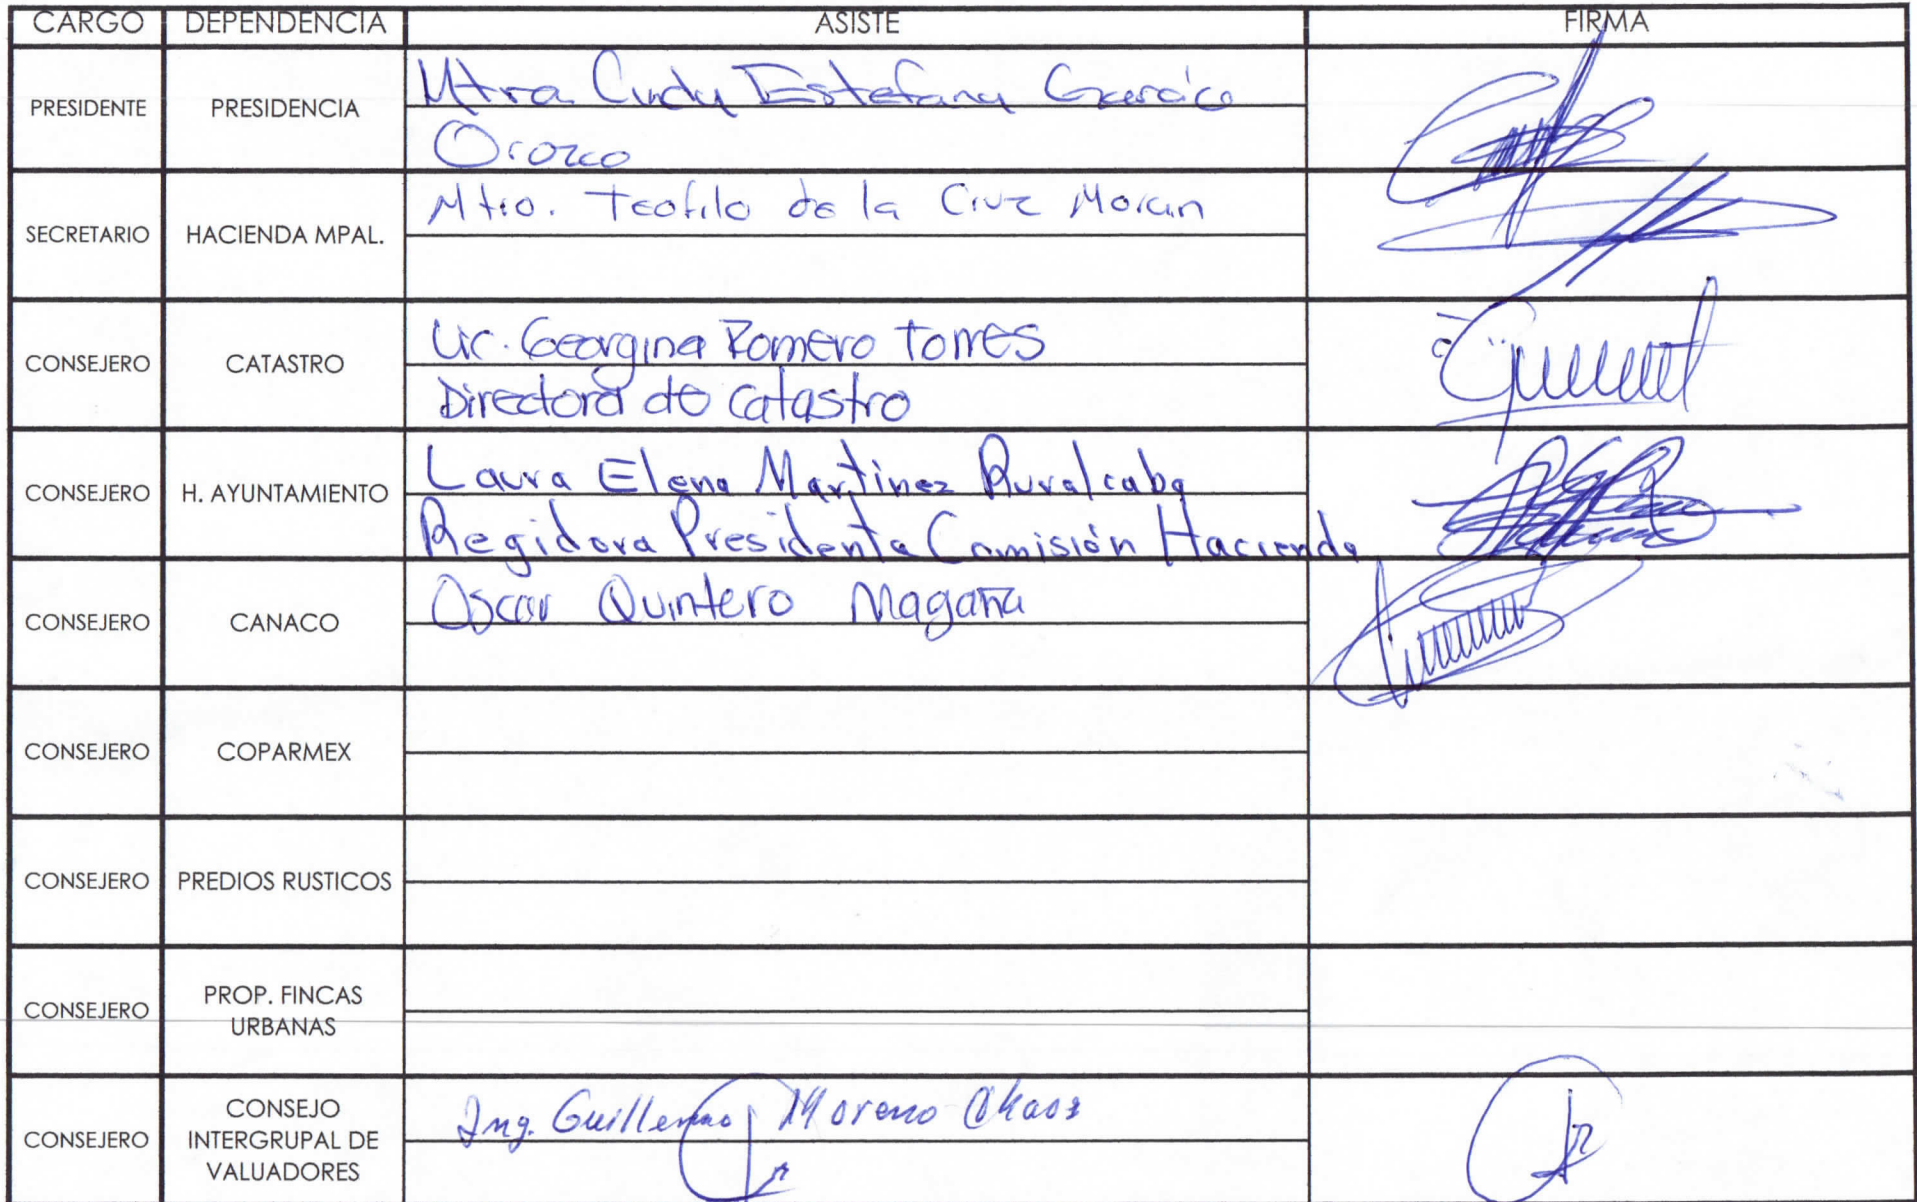 CARGO DEPENDENCIA ASISTE FIRMA
PRESIDENTE PRESIDENCIA Mtra Cindy Estefany García
Orozco
SECRETARIO HACIENDA MPAL. Mtro. Teofilo de la Cruz Moran
CONSEJERO CATASTRO Lic. Georgina Romero Torres
Directora de Catastro
CONSEJERO H. AYUNTAMIENTO Laura Elena Martinez Ruvalcaba
Regidora Presidenta Comisión Hacienda
CONSEJERO CANACO Oscar Quintero Magaña
CONSEJERO COPARMEX
CONSEJERO PREDIOS RUSTICOS
CONSEJERO PROP. FINCAS
URBANAS
CONSEJERO CONSEJO
INTERGRUPAL DE
VALUADORES
Ing. Guillermo Moreno